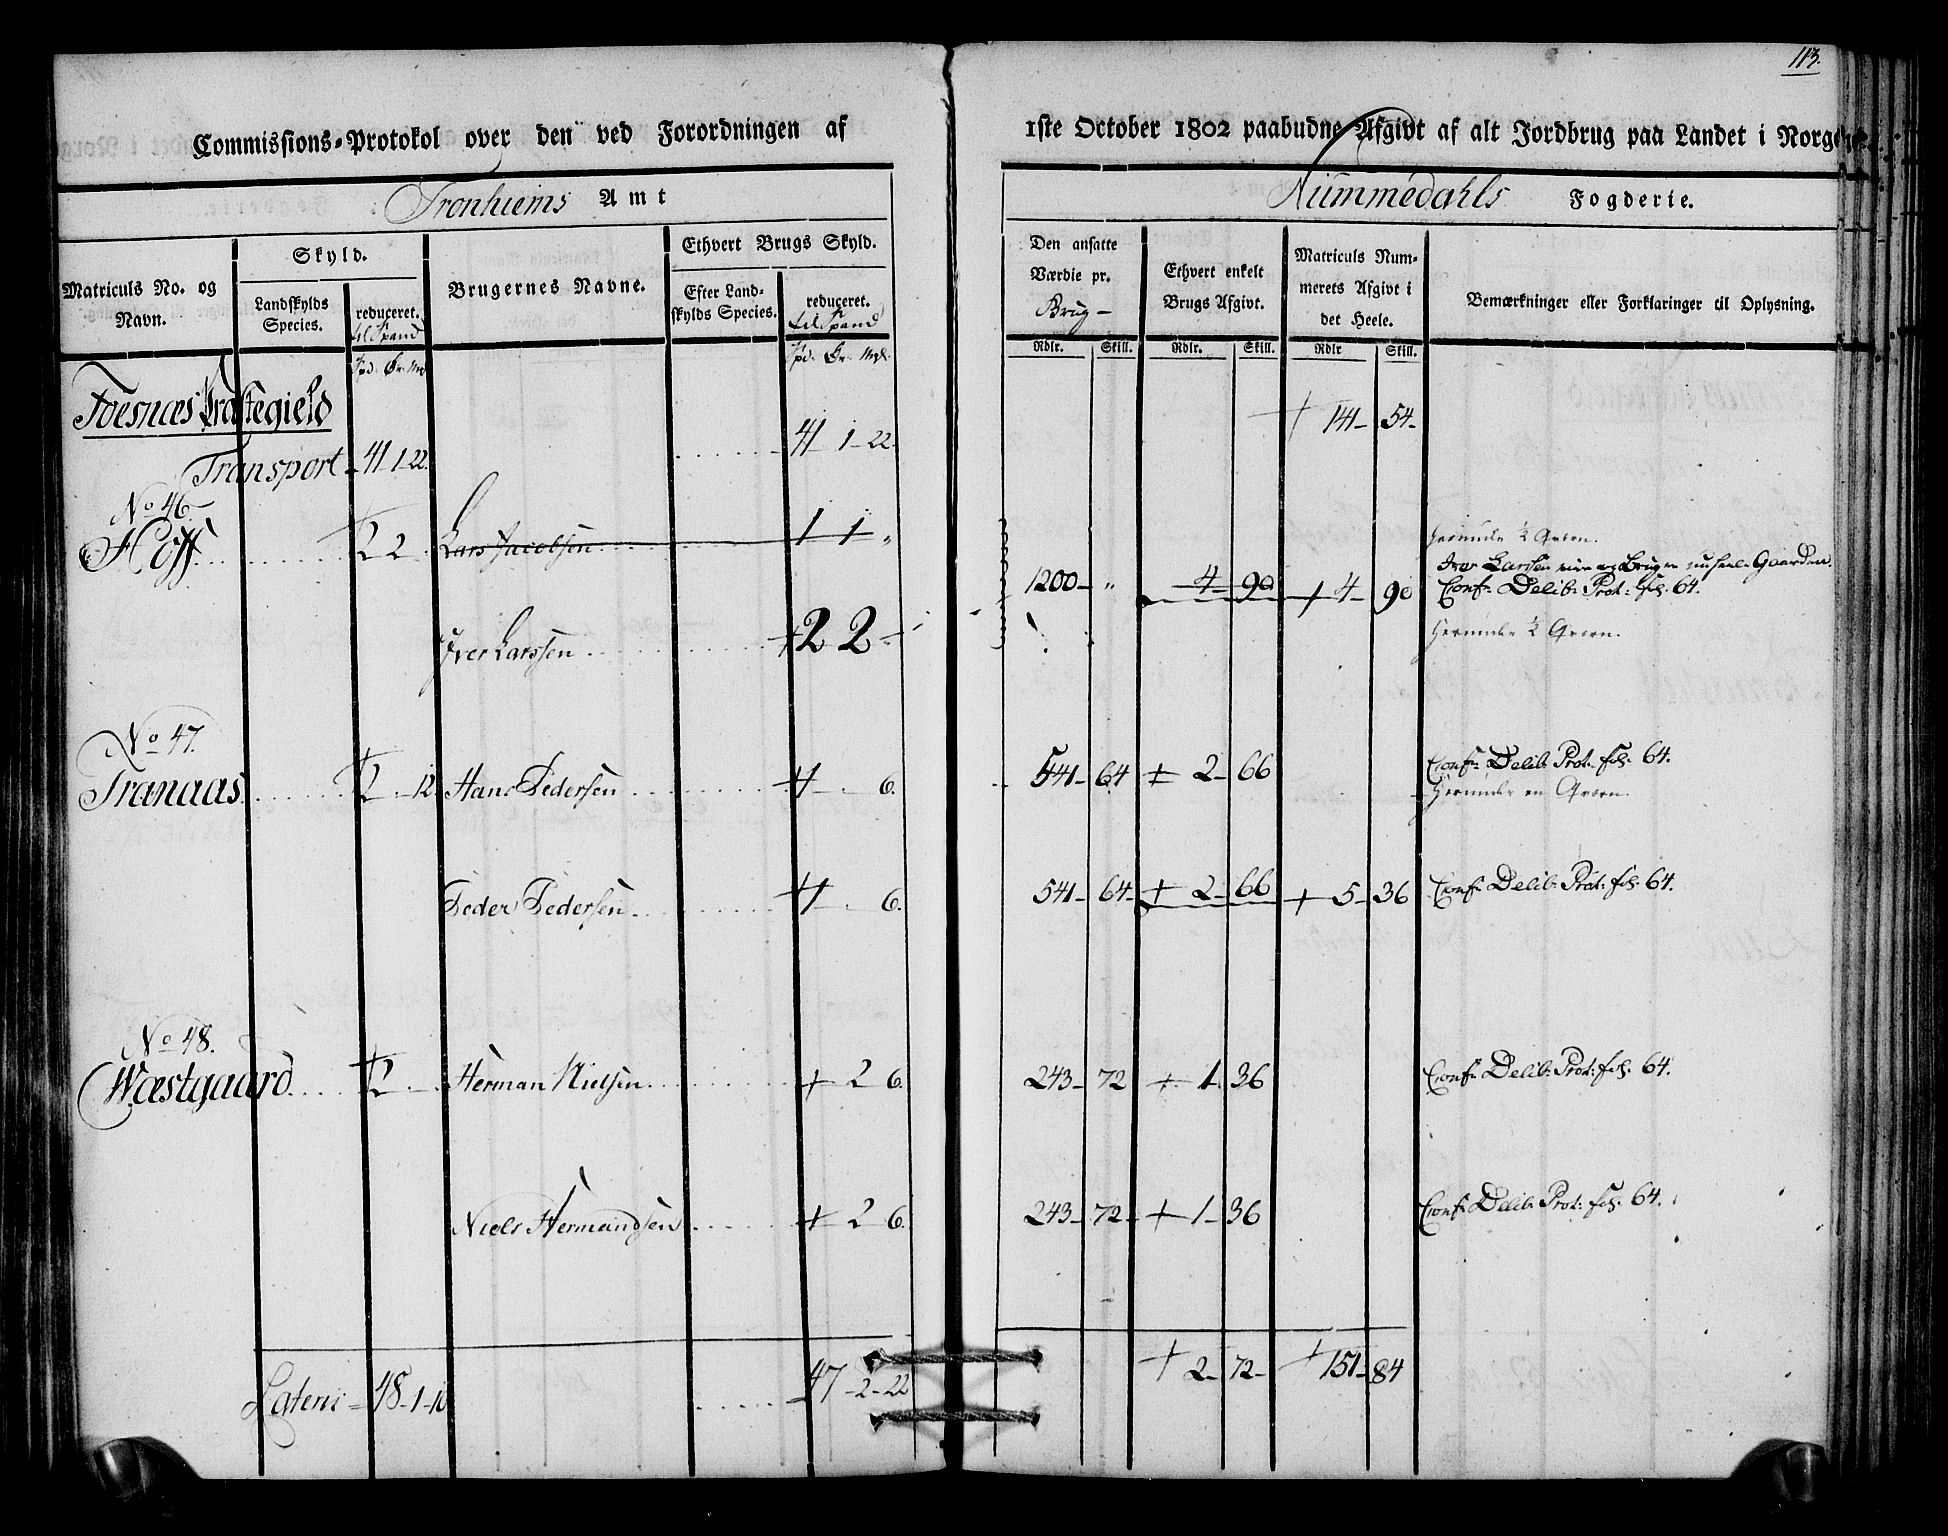 113.
Commissions-Protokol over den ved Forordningen af 1ste October 1802 paabudne Afgivt af alt Jordbrug paa Landet i Norge
Tronhiems Amt
Nummedahls Fogderie.
Matriculs No. og Navn.
Skyld.
Landskylds Species.
reduceret.
til Spand
Brugernes Navne.
Ethvert Brugs Skyld.
Efter Landskylds Species.
reduceret.
til Spand
Den ansatte Værdie pr.
Brug
Ethvert enkelt Brugs Afgivt.
Matriculs Nummerets Afgivt i det Heele.
Bemærkninger eller Forklaringer til Oplysning.
Spd: Ør. Mk.
Spd: Ør. Mk.
Rdlr. Skill. Rdlr. Skill. Rdlr Skill.
Foesnæs Præstegield
Transport 41 1 22. 41 1 22. + 141 54
No 46
Hoff 2 2 Lars Jacobsen 1 1 „
Herunder ½ Qværn.
Iver Larssen Gaarden.
1200 „ 4 90 + 4 90 Conf: Delib: Prot: fol. 64.
Iver Larssen + 2 2 Herunder ½ Qværn.
No 47.
Tranaas 2 12. Hans Pedersen + 1 6. 541 64 + 2 66 Conf: Delib: Prot: fol: 64.
Herunder en Qværn.
Peder Pedersen + 1 6. 541 64 + 2 66 + 5 36 Conf: Delib: Prot: fol: 64.
No 48.
Wæstgaard 2 Herman Nielsen + 2 6. 243 72 + 1 36 Conf: Delib: Prot: fol: 64.
Niels Hermandsen + 2 6. 243 72 + 1 36 Conf: Delib: Prot: fol: 64.
Lateris 48 1 10 47 2 22 + 2 72 + 151 84